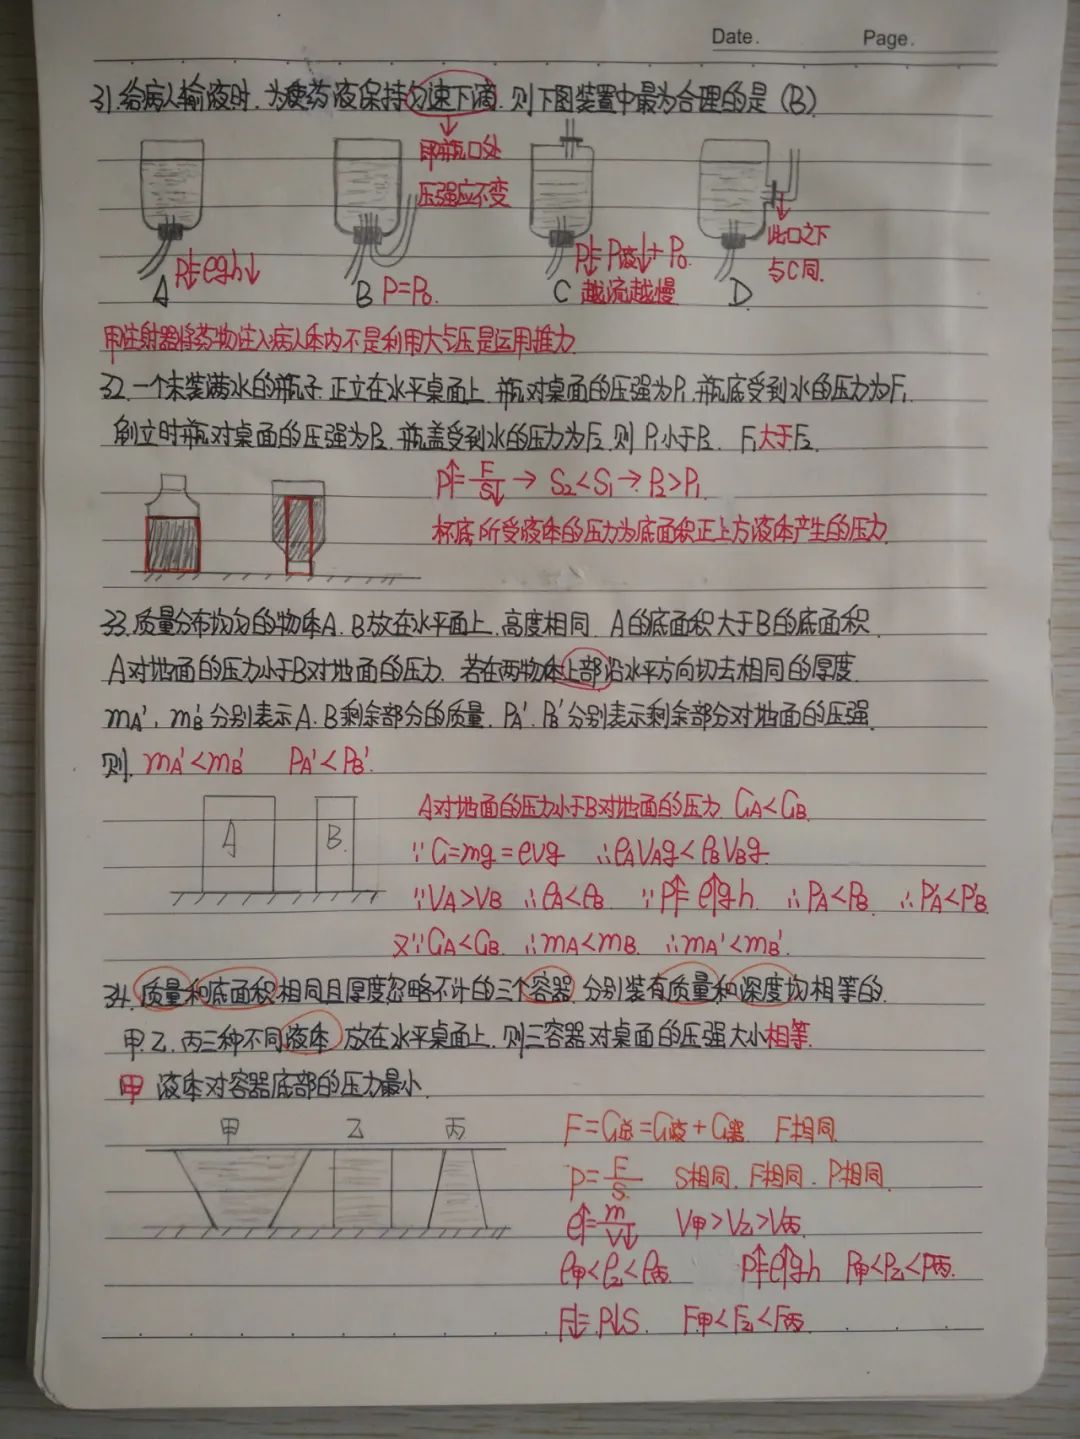 Date. Page.
31.给病人输液时.为使药液保持匀速下滴.则下图装置中最为合理的是(B)
即瓶口处
压强应不变
此口之下
与C同.
P↓=ρgh↓
A
B P=P₀.
P↓=P液↓+P₀.
C 越流越慢
D
用注射器将药物注入病人体内不是利用大气压是运用推力.
32.一个未装满水的瓶子.正立在水平桌面上.瓶对桌面的压强为P₁.瓶底受到水的压力为F₁.
倒立时瓶对桌面的压强为P₂.瓶盖受到水的压力为F₂.则P₁小于P₂. F₁大于F₂.
P↑=F/S↓→S₂<S₁→P₂>P₁.
杯底所受液体的压力为底面积正上方液体产生的压力.
33.质量分布均匀的物体A.B放在水平面上.高度相同.A的底面积大于B的底面积.
A对地面的压力小于B对地面的压力.若在两物体上部沿水平方向切去相同的厚度.
mA'.mB'分别表示A.B剩余部分的质量.PA'.PB'分别表示剩余部分对地面的压强.
则.mA'<mB' PA'<PB'.
A B.
A对地面的压力小于B对地面的压力.GA<GB.
∵G=mg=ρvg ∴ρAVAg<ρBVBg.
∵VA>VB ∴ρA<ρB ∵P↑=ρ↑gh. ∴PA<PB. ∴P'A<P'B.
又∵GA<GB. ∴mA<mB. ∴mA'<mB'.
34.质量和底面积相同且厚度忽略不计的三个容器.分别装有质量和深度均相等的.
甲.乙.丙三种不同液体.放在水平桌面上.则三容器对桌面的压强大小相等.
甲 液体对容器底部的压力最小.
甲 乙 丙
F=G总=G液+G器. F相同.
P=F/S. S相同.F相同.P相同.
ρ↑=m/V↓ V甲>V乙>V丙.
ρ甲<ρ乙<ρ丙. P↑=ρ↑gh P甲<P乙<P丙.
F↓=P↓S. F甲<F乙<F丙.